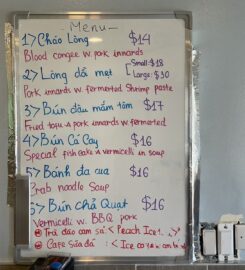 Menu
1> Cháo Lòng $14
Blood congee w pork innards
2> Lòng dồi mẹt Small:$18
Large:$30
Pork innards w fermented Shrimp paste
3> Bún đâu mắm tôm $17
Fried tofu & pork innards w fermented
4> Bún Cá Cay $16
Special fishcake & vermicelli in soup
5> Bánh đa cua $16
Crab noodle Soup
Bún chả Quạt $16
Vermicelli w BBQ pork
Trà đào cam sả < Peach Ice
Cafe Sữa đá : < Ice